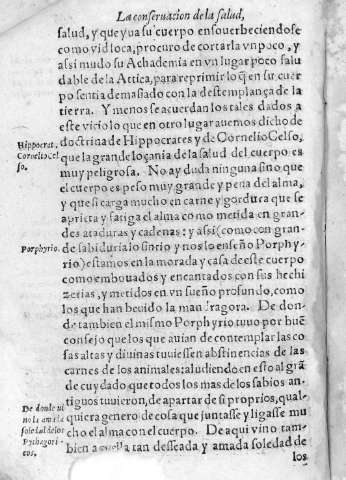 La conseruacion de la salud,
salud, y que yua su cuerpo ensouerbeciendose
como vid loca, procuro de cortarla vn poco, y
assi mudo su Achademia en vn lugar poco salu
dable de la Attica, para reprimir lo q̃ en su cuer
po sentia demasiado con la destemplança de la
tierra. Y menos se acuerdan los tales dados a
este vicio lo que en otro lugar auemos dicho de
Hippocrat, Cornelio Cel so.
doctrina de Hippocrates y de Cornelio Celso,
que la grande loçania de la salud del cuerpo es
muy peligrosa. No ay duda ninguna sino que
el cuerpo es peso muy grande y pena del alma,
y que si carga mucho en carne y gordura que se
aprieta y fatiga el alma como metida en gran-
des ataduras y cadenas: y assi (como con gran-
Porphyrio.
de sabiduria lo sintio y nos lo enseño Porphy-
rio) estamos en la morada y casa deeste cuerpo
como embouados y encantados con sus hechi
zerias, y metidos en vn sueño profundo, como
los que han beuido la mandragora. De don-
de tambien el mismo Porphyrio tuuo por buẽ
consejo que los que auian de contemplar las co
sas altas y diuinas tuuiessen abstinencias de las
carnes de los animales: aludiendo en esto al grã
de cuydado que todos los mas de los sabios an-
De donde ui no la amada soledad delos Pythagori- cos.
tiguos tuuieron, de apartar de si proprios, qual-
quiera genero de cosa que juntasse y ligasse mu
cho el alma con el cuerpo. De aqui vino tam-
bien aquella tan desseada y amada soledad de
los